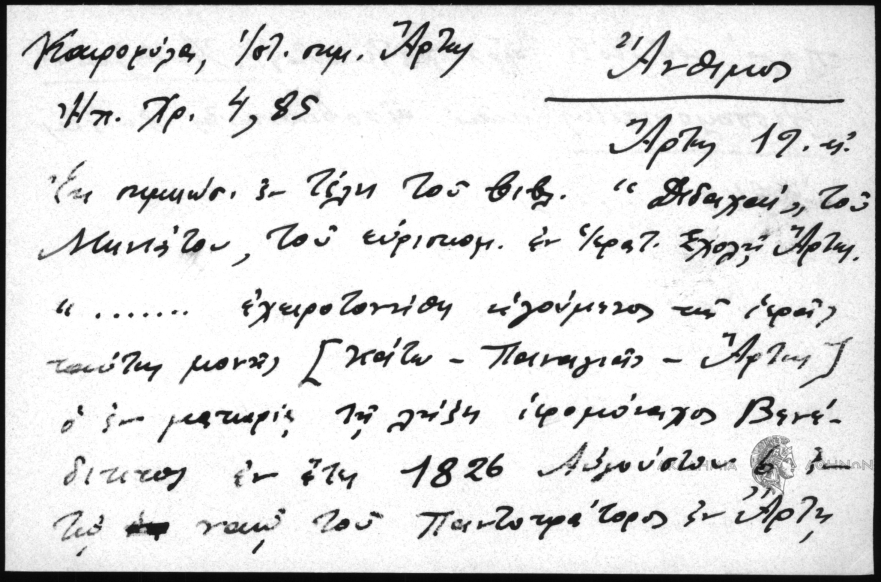 Καιρογύλα, ἱστ. σημ. Ἄρτης
Ἄνθιμος
Ἠπ. Χρ. 4, 85
Ἄρτης 19.
Ἐκ σημειώσ. ἐν τέλει τοῦ βιβ. "Διδαχαί", τοῦ
Μηνιάτου, τοῦ εὑρισκομ. ἐν ἱερατ. Σχολῇ Ἄρτης.
" ....... ἐχειροτονήθη ἡγούμενος τῆς ἱερᾶς
ταύτης μονῆς [Κάτω - Παναγιᾶς - Ἄρτης]
ὁ ἐν μακαρίᾳ τῇ λήξει ἱερομόναχος Βενέ-
δικτος ἐν ἔτει 1826 Αὐγούστου 6 ἐν
τῷ ναῷ τοῦ Παντοκράτορος ἐν Ἄρτῃ